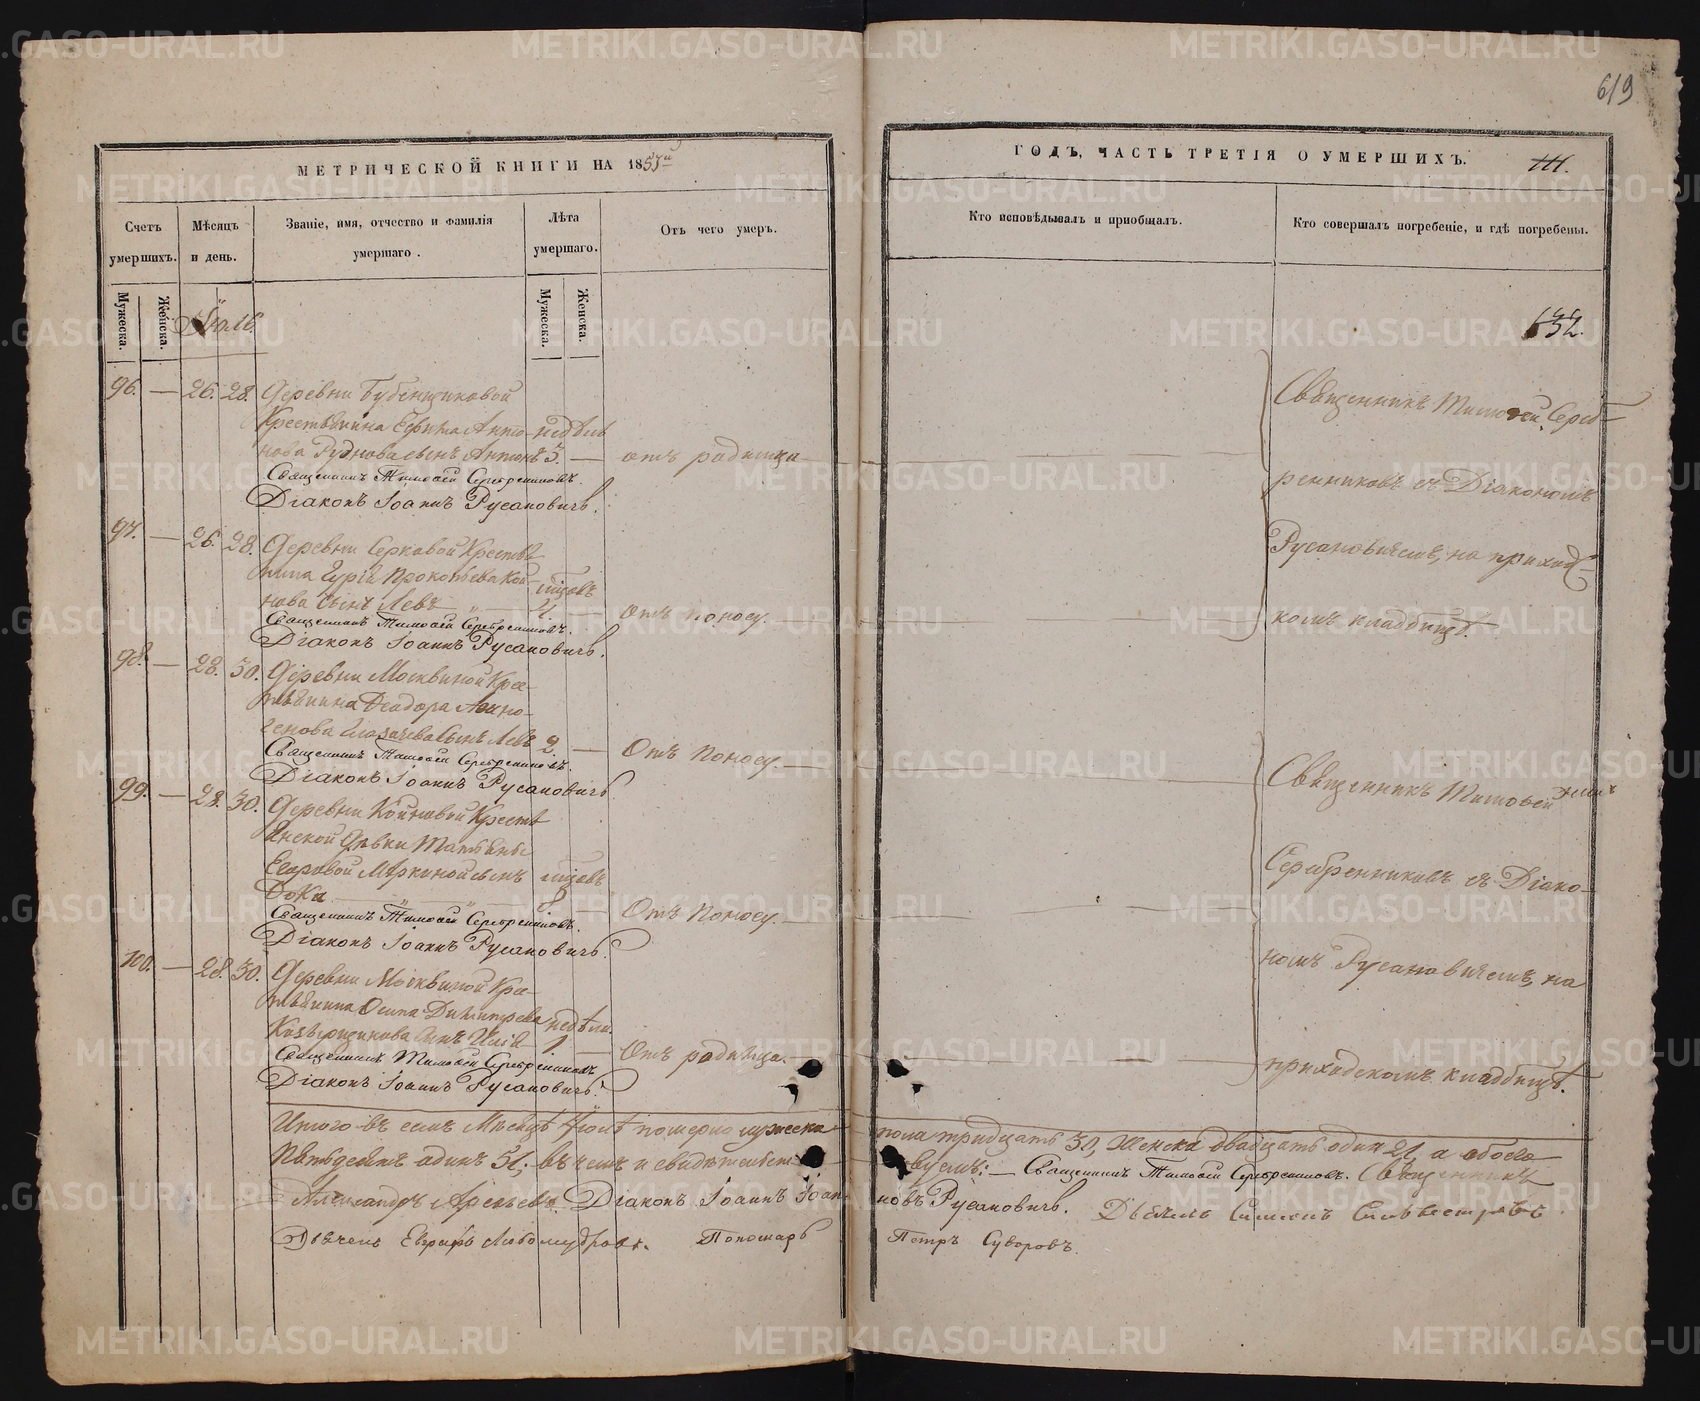 619
МЕТРИЧЕСКОЙ КНИГИ НА 1857й
Счетъ умершихъ.
Мужеска.
Женска.
Мѣсяцъ и день.
Званіе, имя, отчество и фамилія умершаго.
Лѣта умершаго.
Мужеска.
Женска.
Отъ чего умеръ.
Іюль
96. — 26. 28. Деревни Бубенщиковой
Крестьянина Ефима Анто- недѣль
нова Рудновасынъ Антонъ 3. — отъ родимца
Священникъ Тимоѳей Серебренниковъ.
Діаконъ Іоаннъ Русановичъ.
97. — 26. 28. Деревни Серковой Крестья
нина Гурія Прокопьева Кой-
нова сынъ Левъ 4. Отъ поносу.
Священникъ Тимоѳей Серебренниковъ.
Діаконъ Іоаннъ Русановичъ.
98. — 28. 30. Деревни Москвиной Крес-
тьянина Ѳеодора Аѳино-
генова сынъ Левъ 2. — Отъ Поносу.
Священникъ Тимоѳей Серебренниковъ.
Діаконъ Іоаннъ Русановичъ
99. — 28. 30. Деревни Койновой Кресть
янской Дѣвки Татьяны
Егоровой Меркиной сынъ
Фока Отъ Поносу.
Священникъ Тимоѳей Серебренниковъ.
Діаконъ Іоаннъ Русановичъ.
100. — 28. 30. Деревни Москвиной Кре-
тьянина Осипа Димитріева недѣли
сынъ Илія 1 — Отъ родимца.
Священникъ Тимоѳей Серебренниковъ
Діаконъ Іоаннъ Русановичъ.
Итого въ семъ Мѣсяцѣ Іюлѣ померло мужеска
Пятьдесятъ одинъ 51; въ чемъ и свидѣтельст
Александръ Арсеньевъ. Діаконъ Іоаннъ Іоан
Дьячекъ Евграфъ Любомудровъ. Пономарь
ГОДЪ, ЧАСТЬ ТРЕТІЯ О УМЕРШИХЪ. III.
Кто исповѣдывалъ и пріобщалъ.
Кто совершалъ погребеніе, и гдѣ погребены.
632.
Священникъ Тимоѳей Сереб-
ренниковъ съ Діакономъ
Русановичемъ, на приход-
комъ кладбищѣ.
Священникъ Тимоѳей
Серебренниковъ съ Діако-
номъ Русановичемъ, на
приходскомъ кладбищѣ.
пола тридцать 30, Женска двадцать один 21, а обоего
вуемъ: — Священникъ Тимоѳей Серебренниковъ. Священникъ
новъ Русановичъ. Дьячекъ Симеонъ Сильвестровъ
Петръ Суворовъ.
METRIKI.GASO-URAL.RU